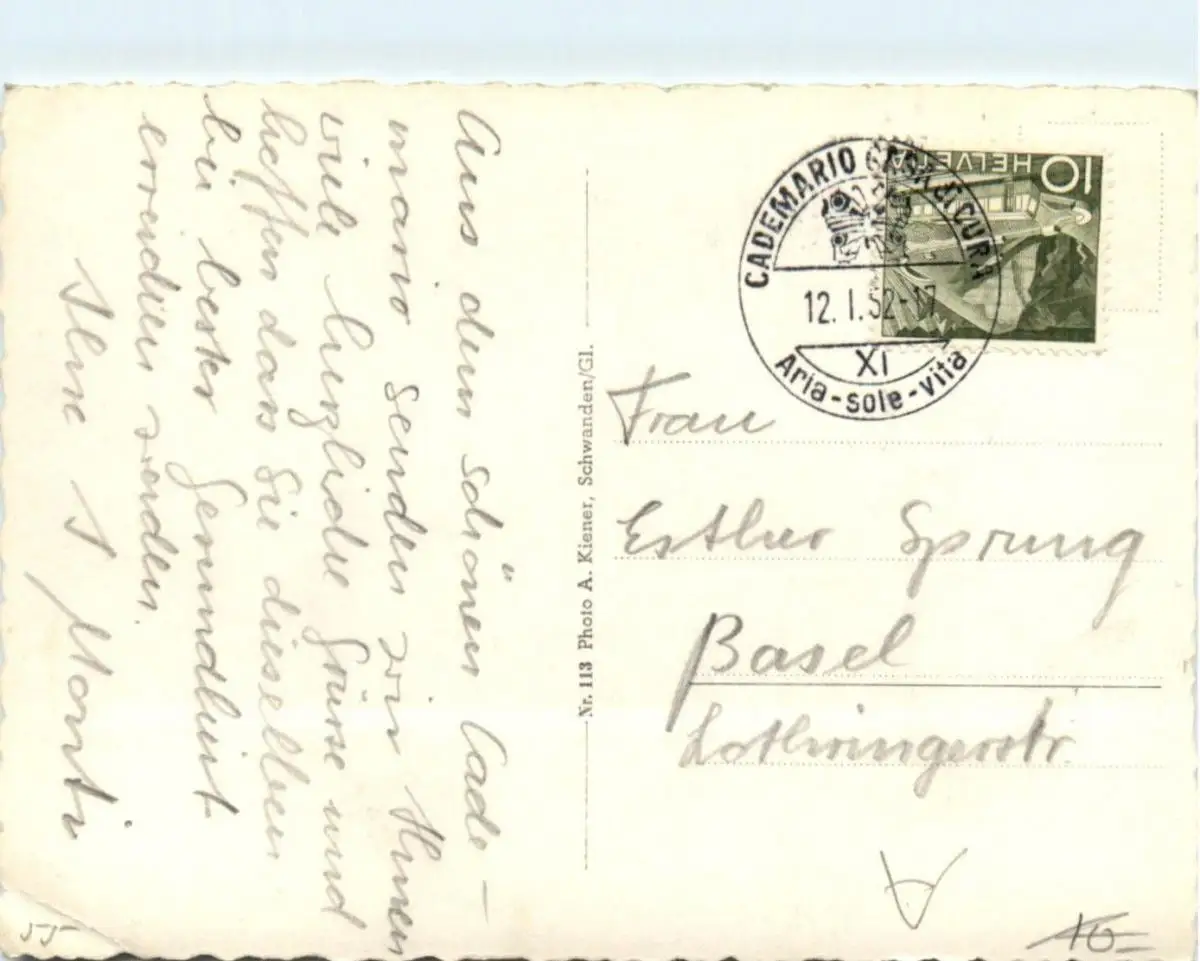 Aus dem schönen Cade-
mario senden wir Ihnen
viele herzliche Grüsse und
hoffen dass Sie dieselben
bei bester Gesundheit
werden.
Ihre
Nr. 113 Photo A. Kiener, Schwanden/Gl.
HELVETIA 10
CADEMARIO CASA di CURA
12. I. 52-17
XI
Aria-sole-vita
Frau
Esther Sprung
Basel
Lothringerstr.
55
10-